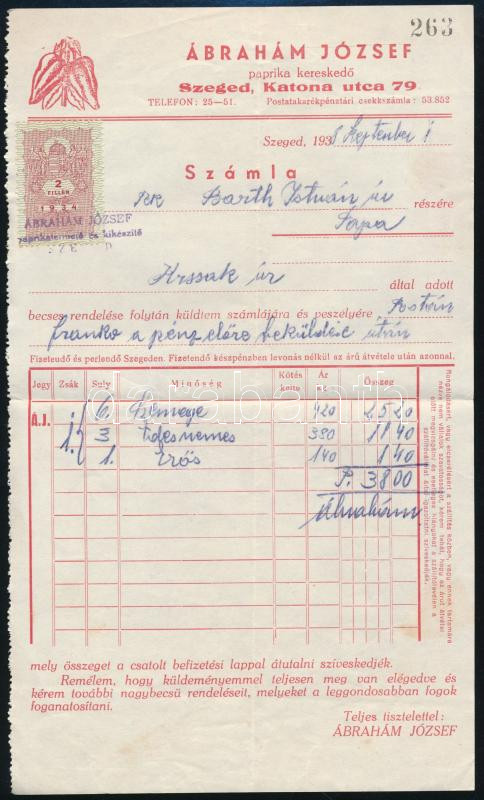 263
ÁBRAHÁM JÓZSEF
paprika kereskedő
Szeged, Katona utca 79.
TELEFON: 25—51. Postatakarékpénztári csekkszámla: 53.852
Szeged, 1938 September 1
Számla
2
FILLÉR
1934
ÁBRAHÁM JÓZSEF
paprikatermelő és kikészítő
Barth István úr részére
Pápa
Krssak úr által adott
becses rendelése folytán küldtem számlájára és veszélyére Postán
franko a pénz előre beküldése után
Fizetendő és perlendő Szegeden. Fizetendő készpénzben levonás nélkül az árú átvétele után azonnal.
Jegy Zsák Suly Minőség Kötés keite Ár Összeg
Á.J. 1. 6. Csemege 420 25 20
3 Édesnemes 380 11 40
1. Erős 140 1 40
P. 38 00
Ábrahám
Rongálódásért, vagy elcserélésért a szállítás közben, vagy ennek tartamára
nézve nem vállalok szavatosságot, kérem tehát, hogy az árut átvétel
előtt megvizsgálni és esetleges hiányokat a szállítólevélen a
szállítóhatóság által igazoltatni szíveskedjék.
mely összeget a csatolt befizetési lappal átutalni szíveskedjék.
Remélem, hogy küldeményemmel teljesen meg van elégedve és
kérem további nagybecsü rendeléseit, melyeket a leggondosabban fogok
foganatosítani.
Teljes tisztelettel:
ÁBRAHÁM JÓZSEF
darabanth